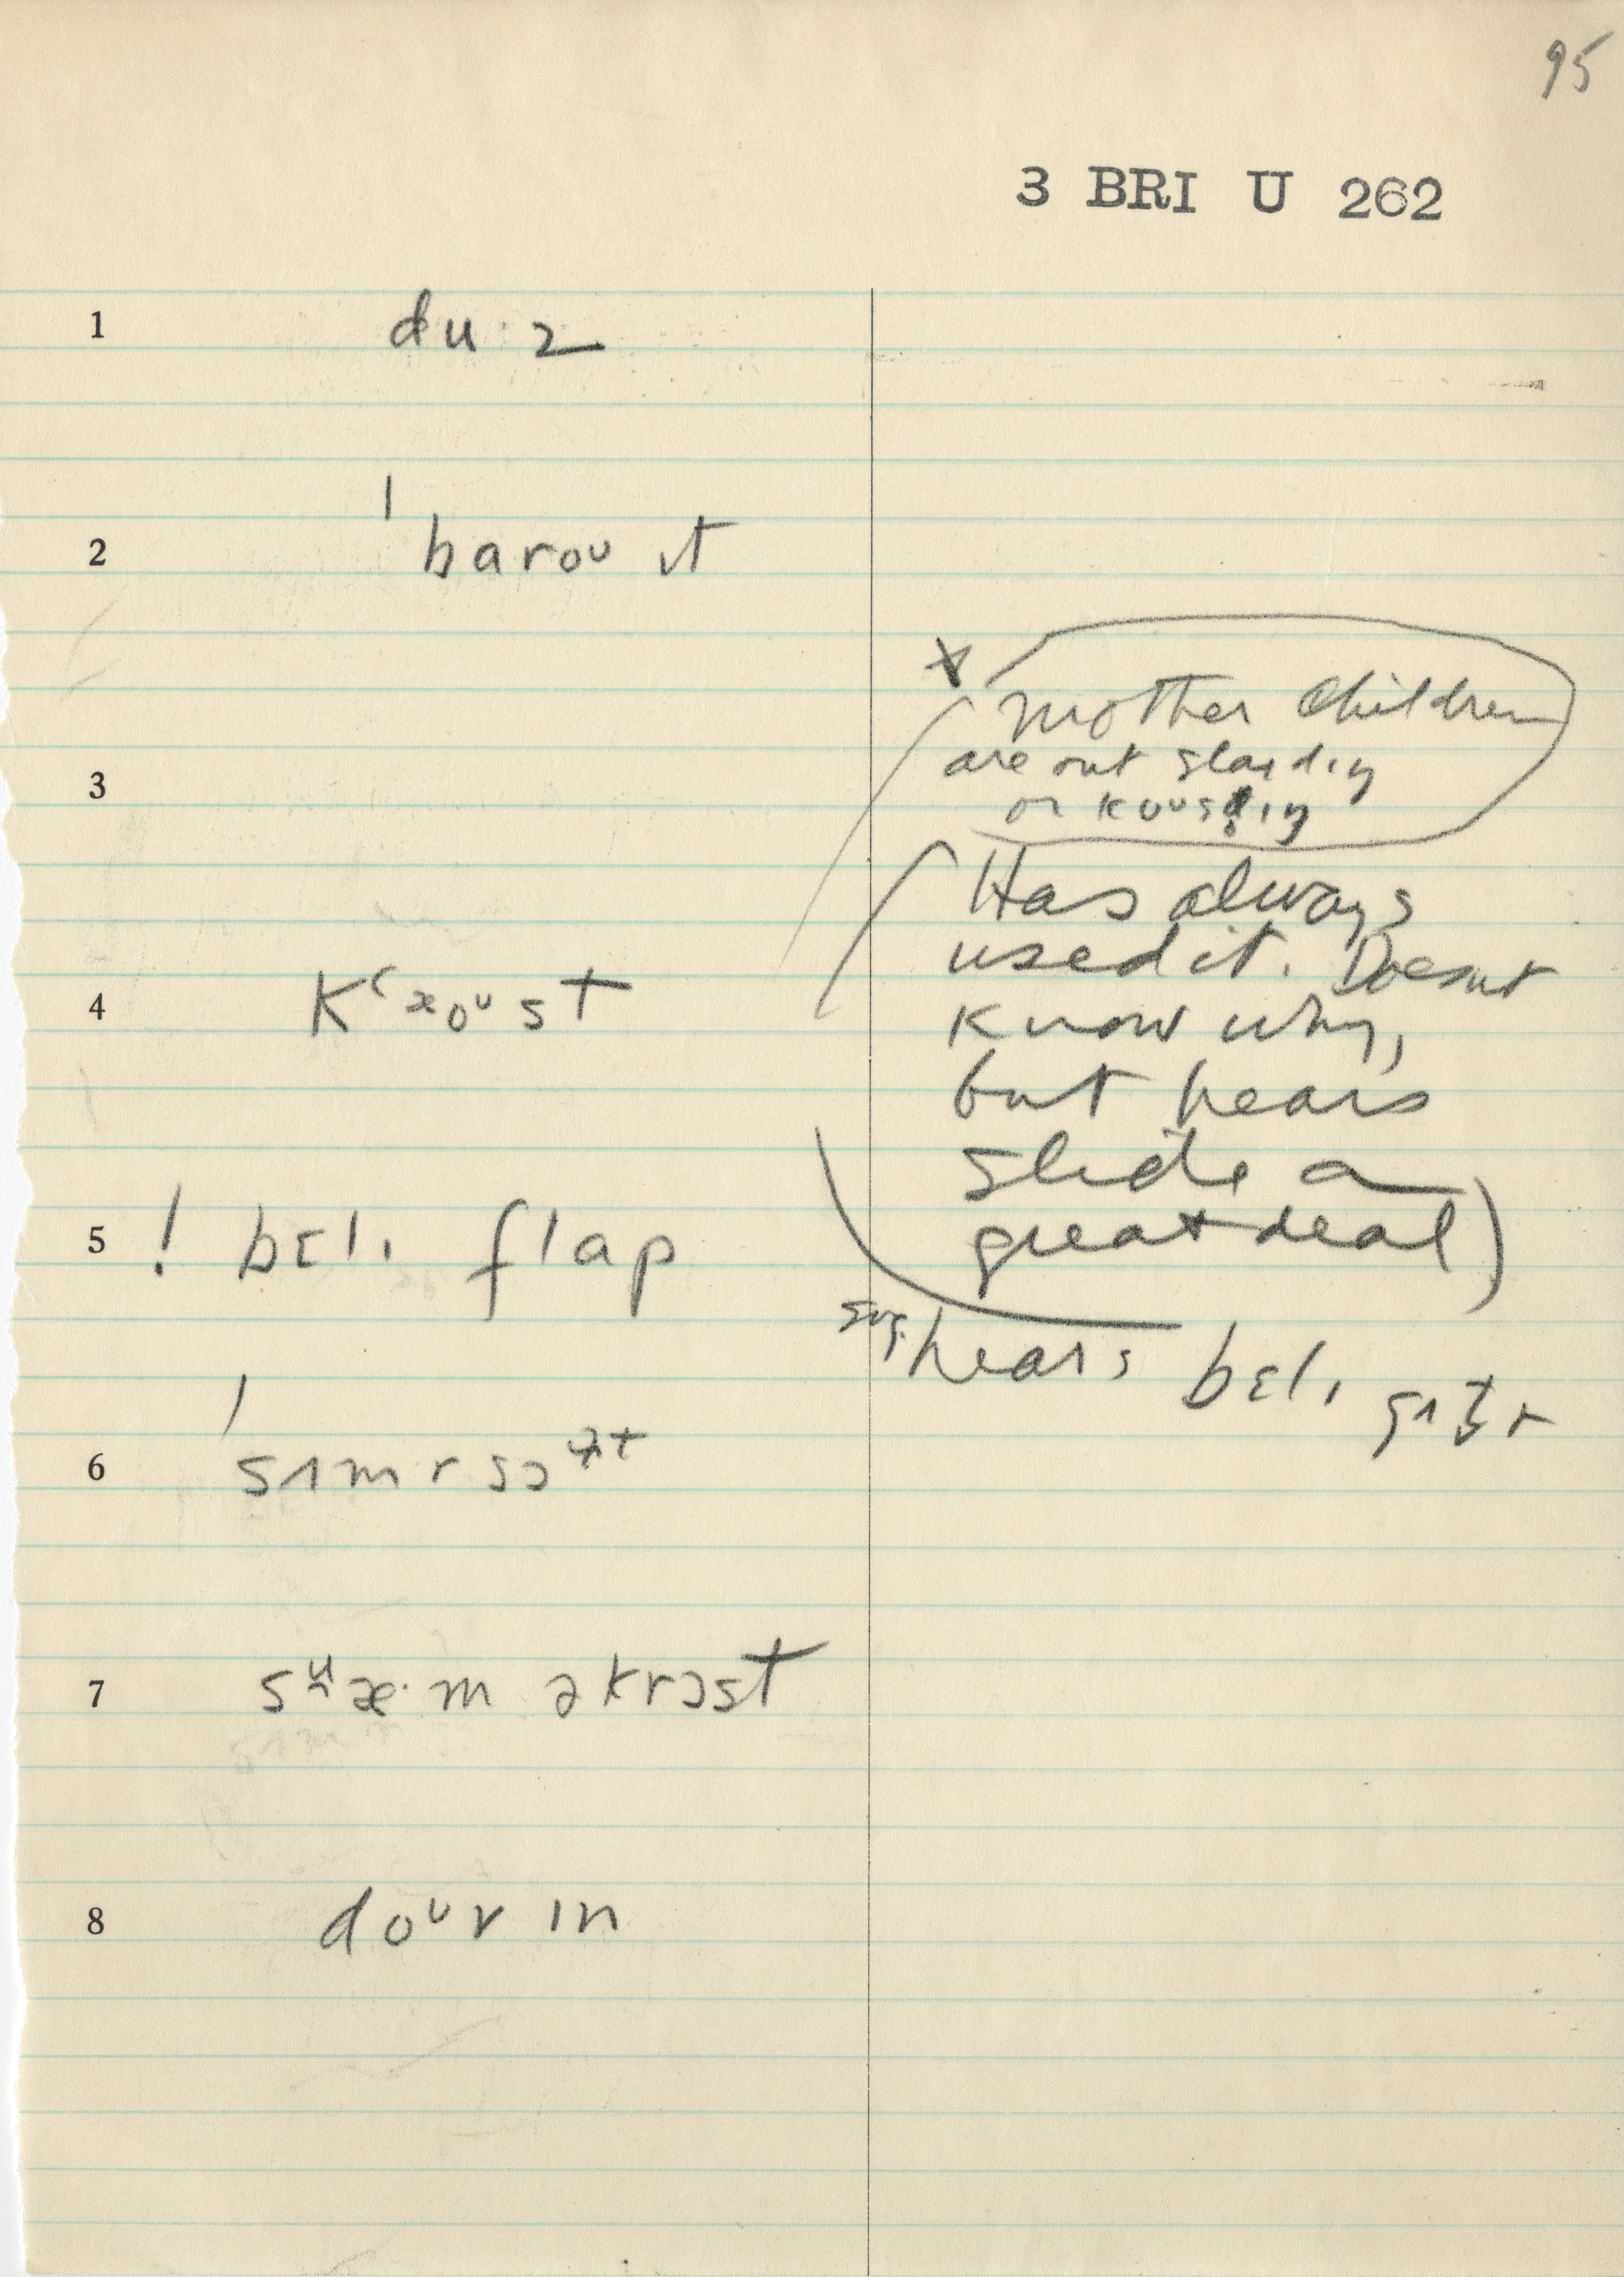 95
3 BRI U 262
1 du·z
2 ˈbaroᴜ ɪt
* mother children
are out slaɪdɪŋ
3
or koᴜstɪŋ
Has always
used it. Doesnt
4 Kʻɜoᵁst
know why,
but hears
slide a
great deal)
5 ! bɛlɪ flap
sug. hears bɛlɪ
6 ˈsʌmrsɔ
7 æ·m əkrɔst
8 doᵁr ɪn